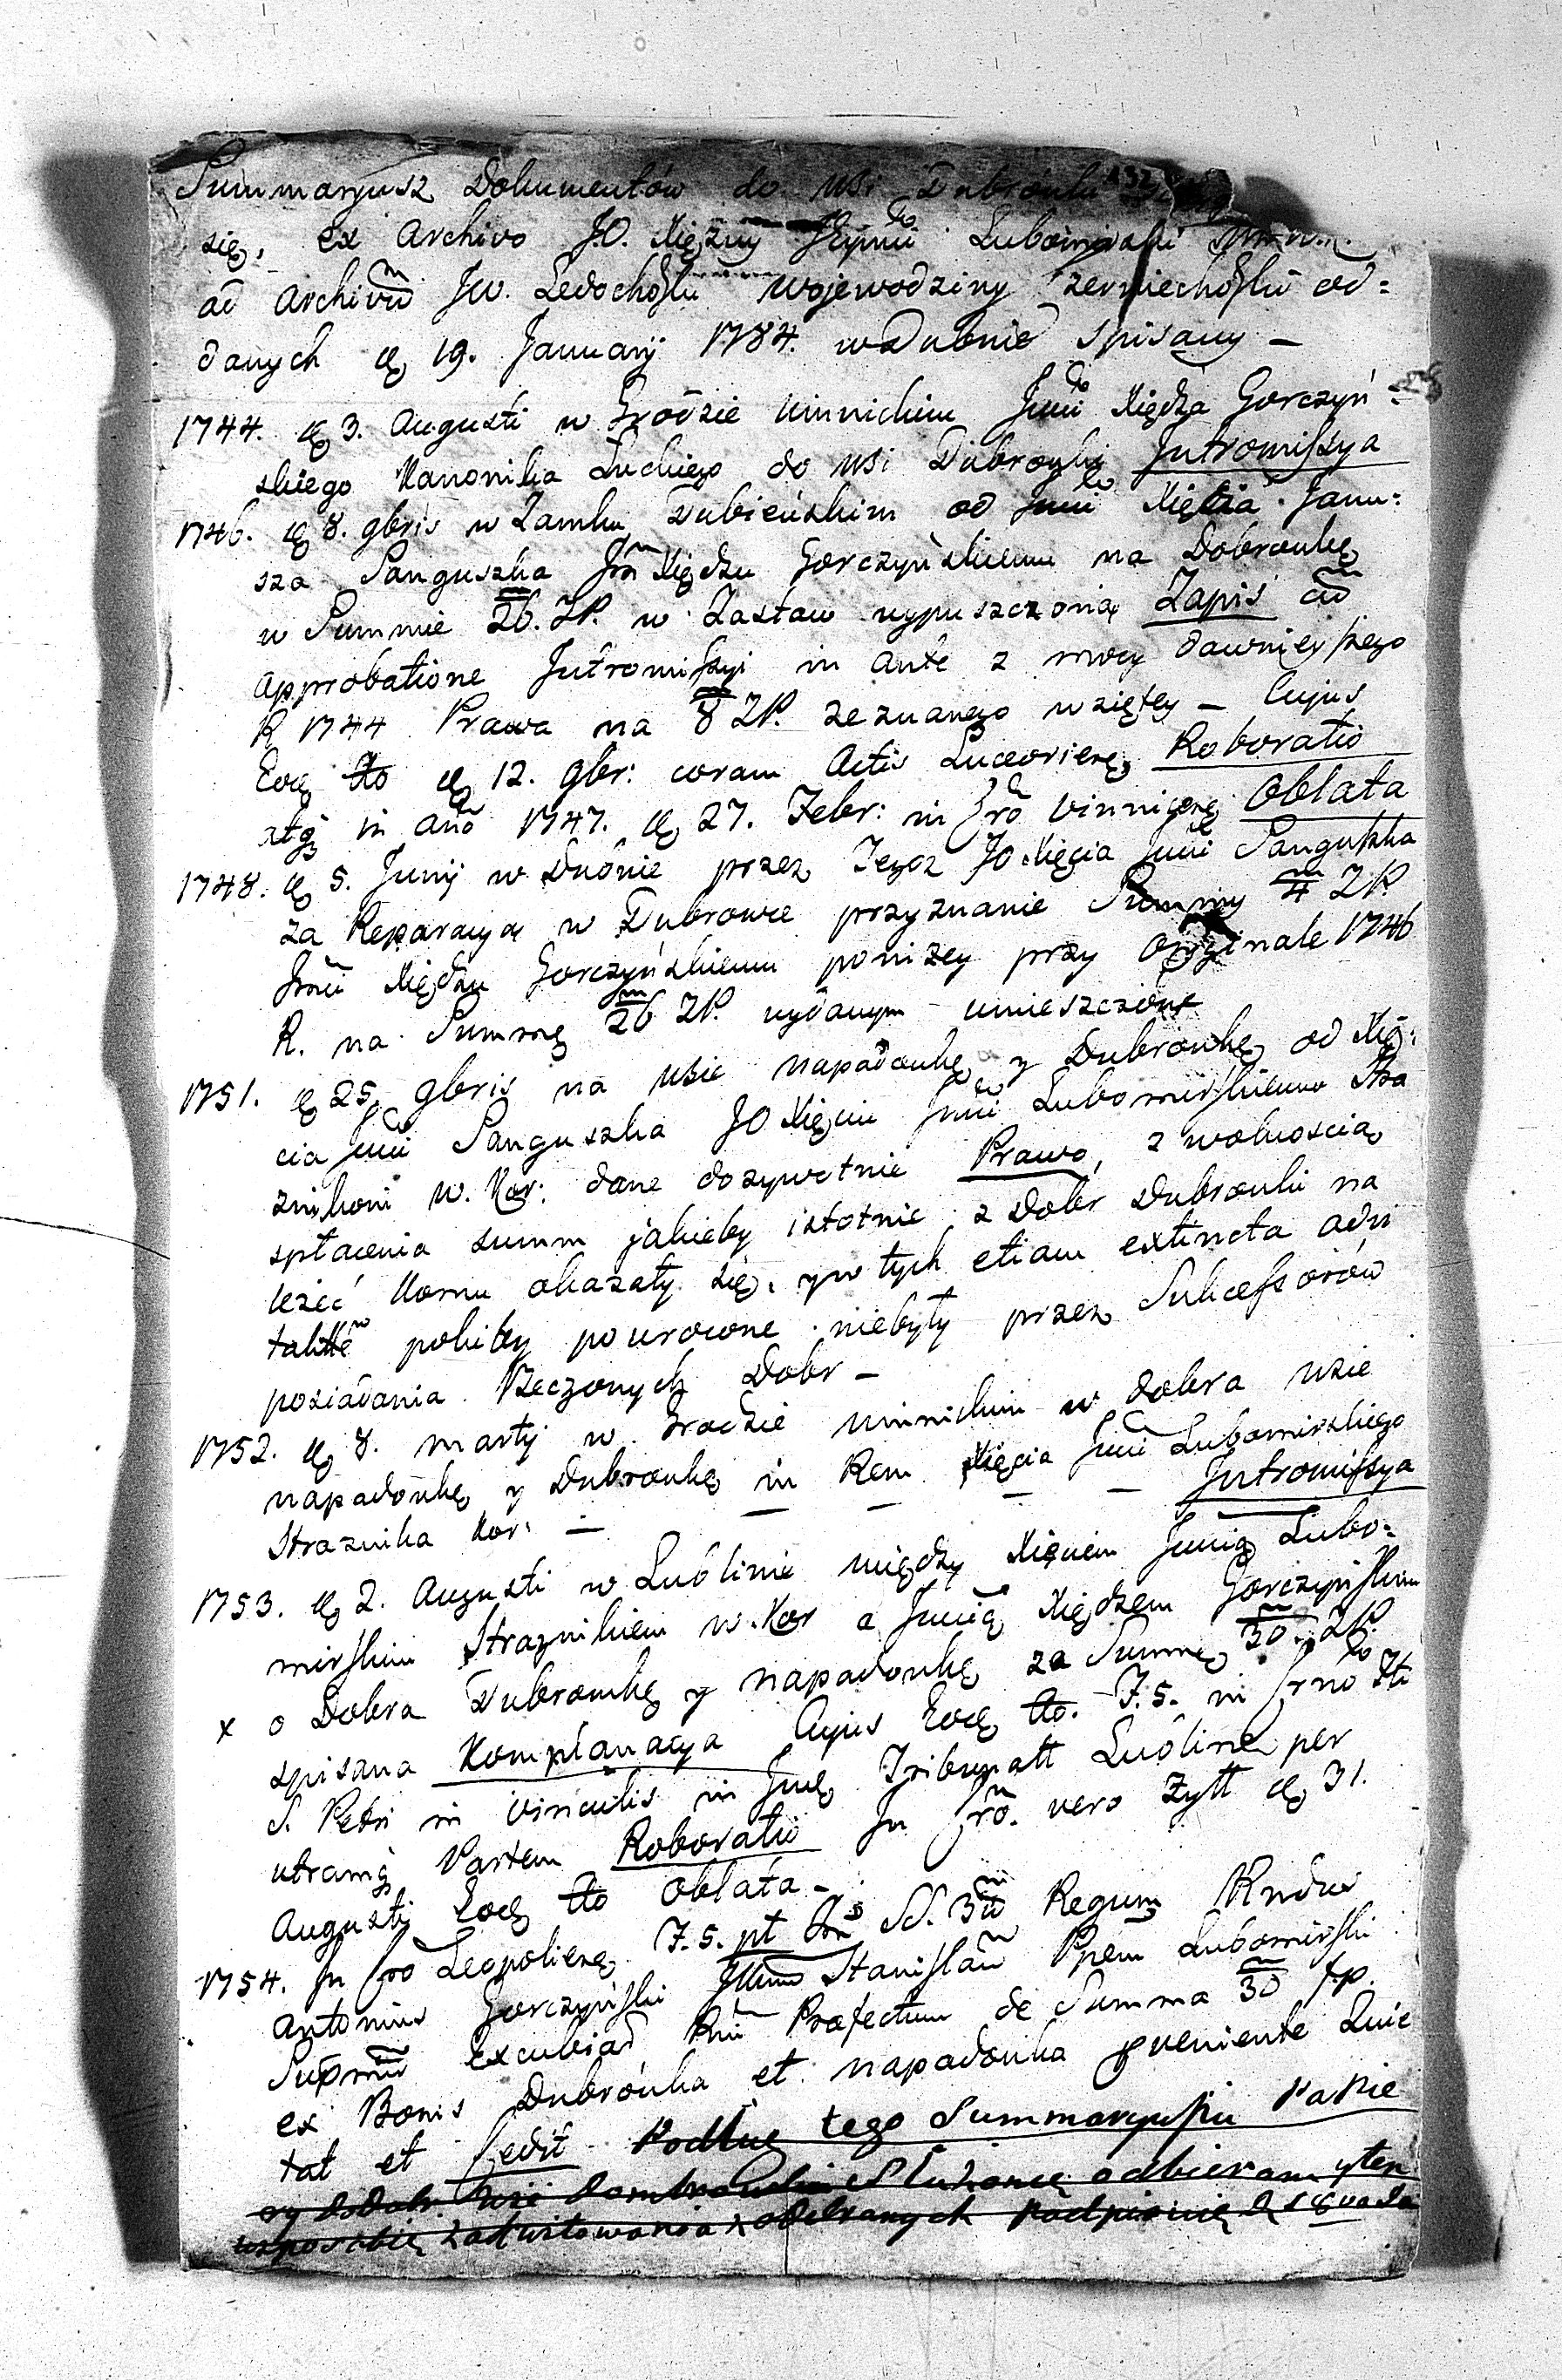 Summaryusz Dokumentów do wsi Dubrowki
się, ex Archivo J.O. Xiężny Jeymći Lubomirski
ad Archivū Jw. Ledochoſkī Wojewodziny Czerniechoſkī od=
danych d. 19. January 1784. w Dubnie spisany —
1744. d. 3. Augusti w Grodzie Winnickim Jmći Xiędza Gorczyń=
skiego Kanonika Łuckiego do wsi Dubrowki Intromiſsya
1746. d. 8. 9bris w Zamku Dubieńskim od Jmći Xięcia Janu=
sza Sanguszka Jm Xiędzu Gorczyńskiemu na Dobrowkę
w Summie 26. ZP. w Zastaw wypuszczoną Zapis cū
approbatione Intromiſsyi in ante z mocy dawnieyſzego
R 1744 Prawa na 8 ZP. zeznanego wziętey — Cujus
Eoq̨ tto d. 12. 9br: coram Actis Luceorienę, Roboratio
atq̨ in año 1747. d. 27. Febr: in Gro Vinnicenę Oblata
1748. d. 5. Junij w Dubnie przez Tegoż JO Xięcia Jmći Sanguſzka
za Reparacyą w Dubrowce przyznanie Summy 4 ZP.
Jmći Xiędzu Gorczyńskiemu poniżey przy Oryginale 1746
R. na Summę 26 ZP. wydanym umieszczone
1751. d. 25. 9bris na wsie Napadowkę y Dubrowkę od Xię:
cia Jmći Sanguszka JO Xięciu Jmći Lubomirſkiemu Stra
żnikowi W. Kor: dane dożywotnie Prawo, z wolnością
spłacenia summ jakieby istotnie z Dobr Dubrowki na
leżeć komu okazały się, y w tych etiam extincta advi
talitte pokiby powrocone niebyły przez Sukceſsorów
posiadania Rzeczonych Dobr —
1752. d. 8. Martij w Grodzie Winnickim w dobra wsie
Napadowkę y Dubrowkę in Rem Xięcia Jmći Lubomirskiego
Strażnika Kor: — — — — — Intromiſsya
1753. d. 2. Augusti w Lublinie między Xięciem Jmcią Lubo=
mirſkim Strażnikiem W. Kor a Jmcią Xiędzem Gorczyńſkim
x o Dobra Dubrowkę y Napadowkę za Summę 30. ZP.
spisana Komplanacya Cujus Eoq̨ tto. F. 5. in Crno Fti
S. Petri in Vinculis in Judę Tribunatt Lubline per
utramq̨ Partem Roboratio In Gro. vero Zytt d. 31.
Augusti Eoq̨ tto Oblata —
1754. In Gro Leopolienę F. 5. pt Fm SS. 3ū Regum Rndus
Antonius Gorczyńſki Jllmm Stanislaū Ppem Lubomirſki
Supmū Excubiaū Rni Præfectum de Summa 30 fp.
ex Bonis Dubrówka et Napadowka pveniente Quie
tat et Cedit Podług tego Summaryuſzu Papie
ry do Dobr Wsi Dombrowki Służące odbieram y ten